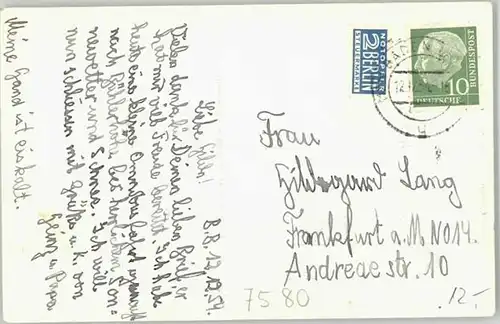 B.B. 12.12.54
Liebe Hilla!
Vielen Dank für Deinen lieben Brief, er
hat mir viel Freude bereitet. Ich habe
heute eine kleine Omnibus fahrt gemacht
nach bei herrlichem Son-
nenwetter und Schnee. Ich will
nun schliessen mit Grüße u. K. von
u. Papa
Meine Hand ist eiskalt.
NOTOPFER
2 BERLIN
STEUERMARKE
DEUTSCHE
BUNDESPOST
10
Frau
Hildegard Lang
Frankfurt a. M NO14.
Andreaestr. 10
7580
12,-